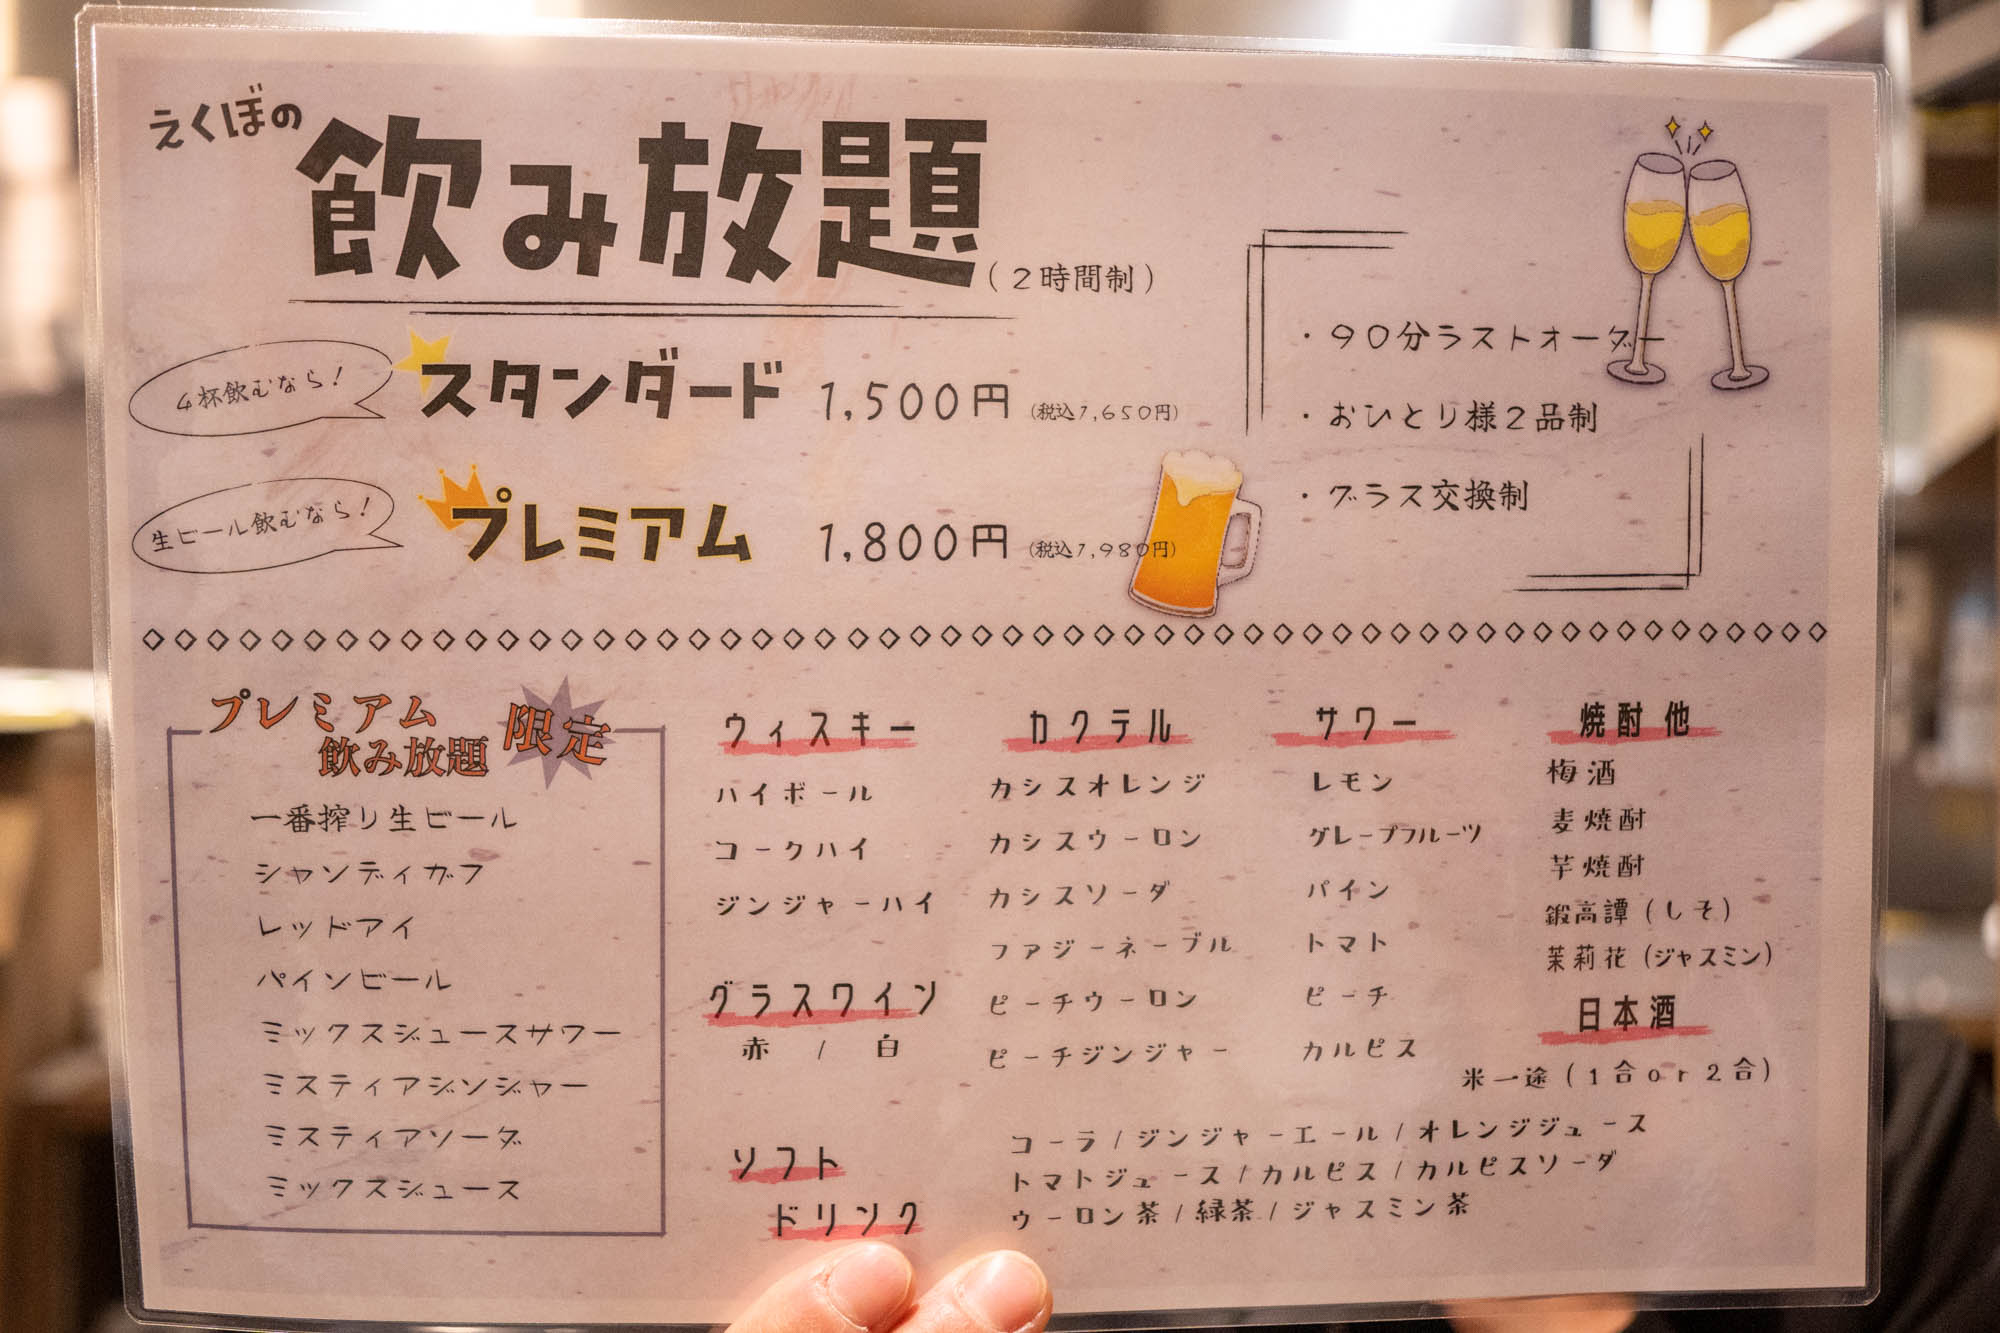 えくぼの
飲み放題
(2時間制)
4杯飲むなら!
スタンダード 1,500円 (税込1,650円)
生ビール飲むなら!
プレミアム 1,800円 (税込1,980円)
・90分ラストオーダー
・おひとり様2品制
・グラス交換制
プレミアム
飲み放題
限定
一番搾り生ビール
シャンディガフ
レッドアイ
パインビール
ミックスジュースサワー
ミスティアジンジャー
ミスティアソーダ
ミックスジュース
ウィスキー
ハイボール
コークハイ
ジンジャーハイ
グラスワイン
赤 / 白
カクテル
カシスオレンジ
カシスウーロン
カシスソーダ
ファジーネーブル
ピーチウーロン
ピーチジンジャー
サワー
レモン
グレープフルーツ
パイン
トマト
ピーチ
カルピス
焼酎 他
梅酒
麦焼酎
芋焼酎
鍛高譚(しそ)
茉莉花(ジャスミン)
日本酒
米一途(1合or2合)
ソフト
ドリンク
コーラ/ジンジャーエール/オレンジジュース
トマトジュース/カルピス/カルピスソーダ
ウーロン茶/緑茶/ジャスミン茶